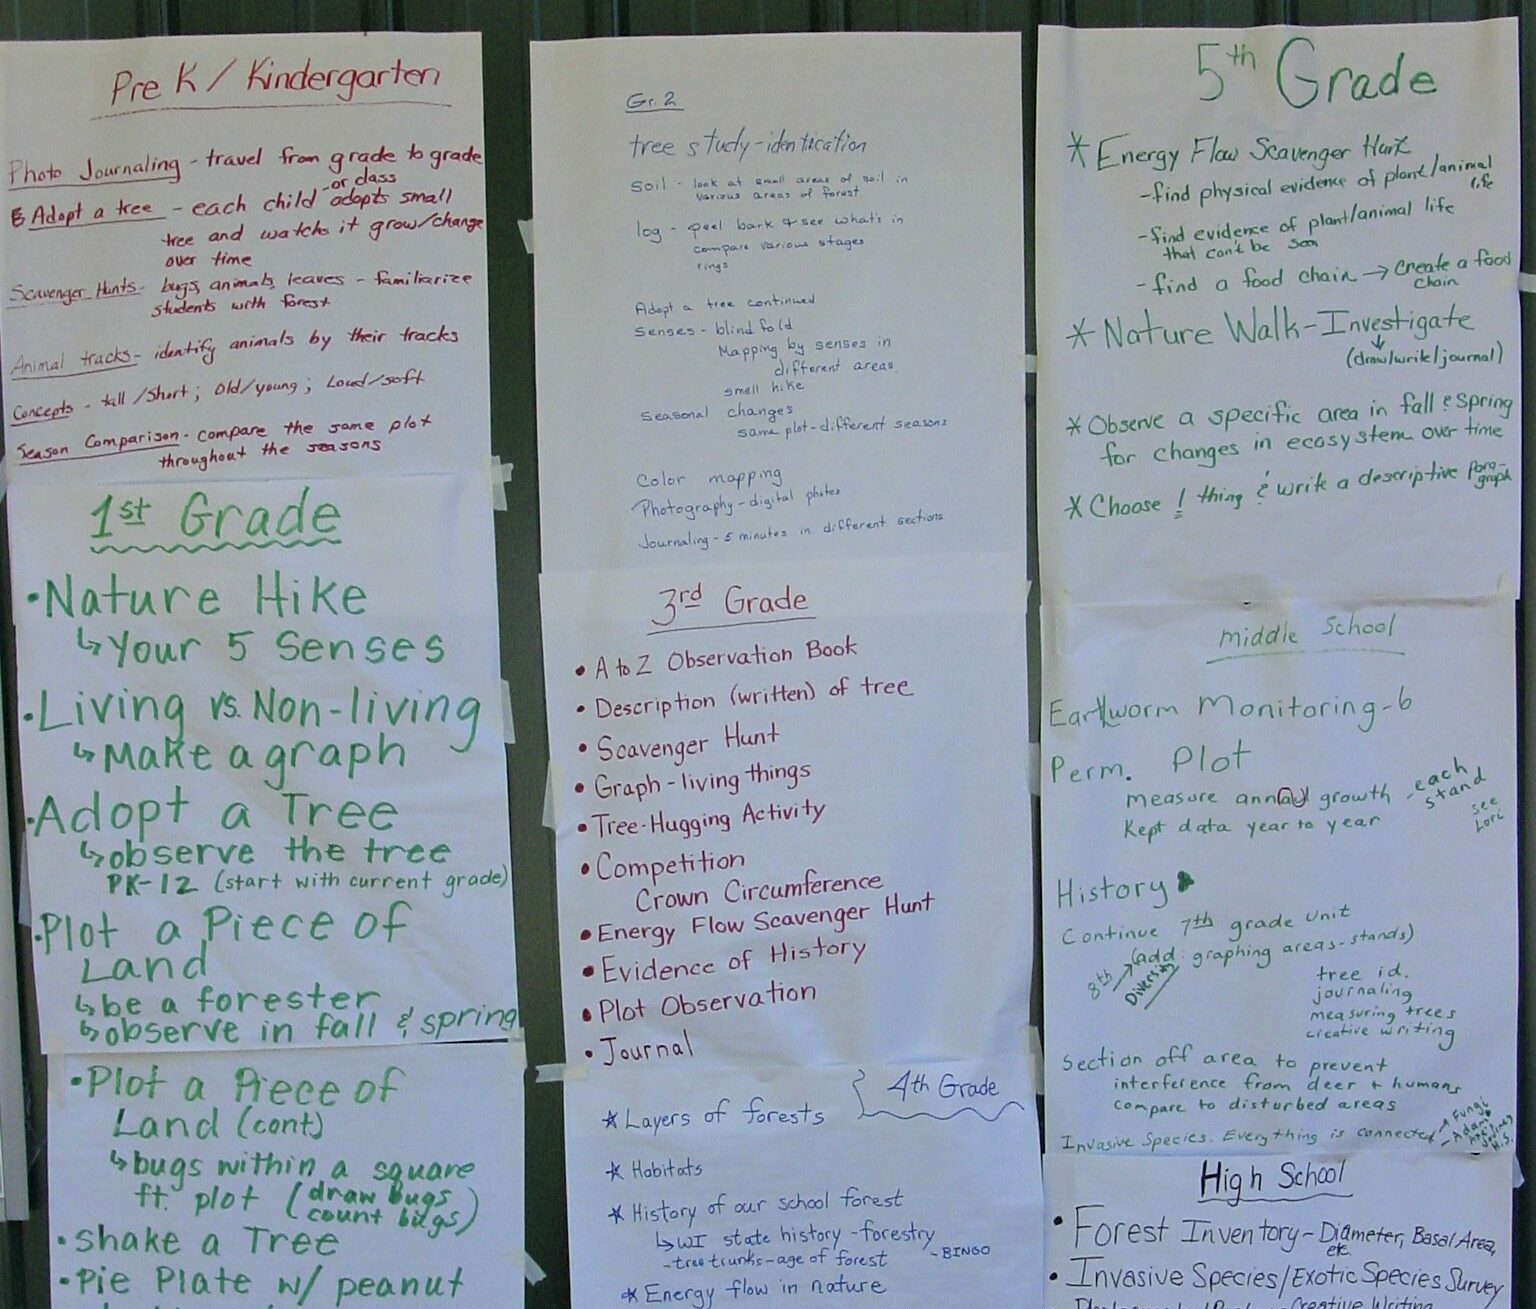 Pre K / Kindergarten
Photo Journaling - travel from grade to grade
-or class
Adopt a tree - each child adopts small
tree and watchs it grow/change
over time
Scavenger Hunts - bugs, animals, leaves - familiarize
students with forest
Animal tracks - identify animals by their tracks
Concepts - tall/short; Old/young; Loud/soft
Season Comparison - compare the same plot
throughout the seasons
1st Grade
• Nature Hike
↳ Your 5 Senses
• Living vs. Non-living
↳ Make a graph
• Adopt a Tree
↳ observe the tree
PK-12 (start with current grade)
• Plot a Piece of
Land
↳ be a forester
↳ observe in fall & spring
• Plot a Piece of
Land (cont)
↳ bugs within a square
ft. plot (draw bugs
count bugs)
• Shake a Tree
• Pie Plate w/ peanut
Gr. 2
tree study-identification
soil - look at small areas of soil in
various areas of forest
log - peel bark & see what's in
compare various stages
rings
Adopt a tree continued
Senses - blind fold
Mapping by senses in
different areas
smell hike
Seasonal changes
same plot - different seasons
Color mapping
Photography - digital photos
Journaling - 5 minutes in different sections
3rd Grade
• A to Z Observation Book
• Description (written) of tree
• Scavenger Hunt
• Graph - living things
• Tree-Hugging Activity
• Competition
Crown Circumference
• Energy Flow Scavenger Hunt
• Evidence of History
• Plot Observation
• Journal
4th Grade
* Layers of forests
* Habitats
* History of our school forest
↳ WI state history - forestry
- tree trunks - age of forest - BINGO
* Energy flow in nature
5th Grade
* Energy Flow Scavenger Hunt
- find physical evidence of plant/animal
life
- find evidence of plant/animal life
that can't be seen
- find a food chain → Create a food
chain
* Nature Walk - Investigate
↓
(draw/write/journal)
* Observe a specific area in fall & spring
for changes in ecosystem over time
* Choose 1 thing & write a descriptive para-
graph
Middle School
Earthworm Monitoring - 6
Perm. Plot
measure annual growth - each
stand
Kept data year to year
see
Lori
History
Continue 7th grade unit
8th → (add: graphing areas - stands)
Diversity
tree id.
journaling
measuring trees
creative writing
Section off area to prevent
interference from deer + humans
compare to disturbed areas
Invasive Species. Everything is connected
- Fungi
H.S.
High School
• Forest Inventory - Diameter, Basal Area,
etc.
• Invasive Species/Exotic Species Survey
Creative Writing